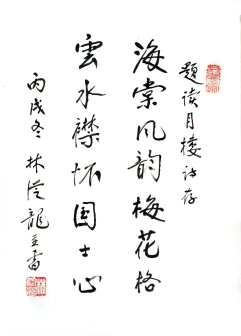 题读月楼诗存
海棠风韵梅花格
雲水襟怀国士心
丙戌冬 林从龍